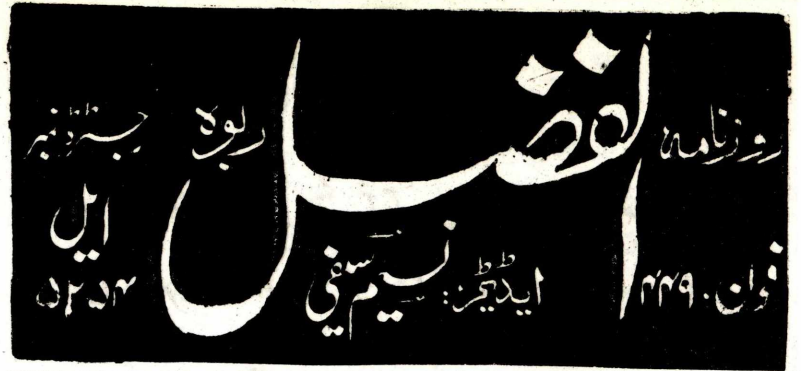 روزنامہ الفضل ربوہ رجسٹرڈ نمبر
ایل
فون . ۴۴۹ ایڈیٹر: نسیم سیفی ۵۲۵۴